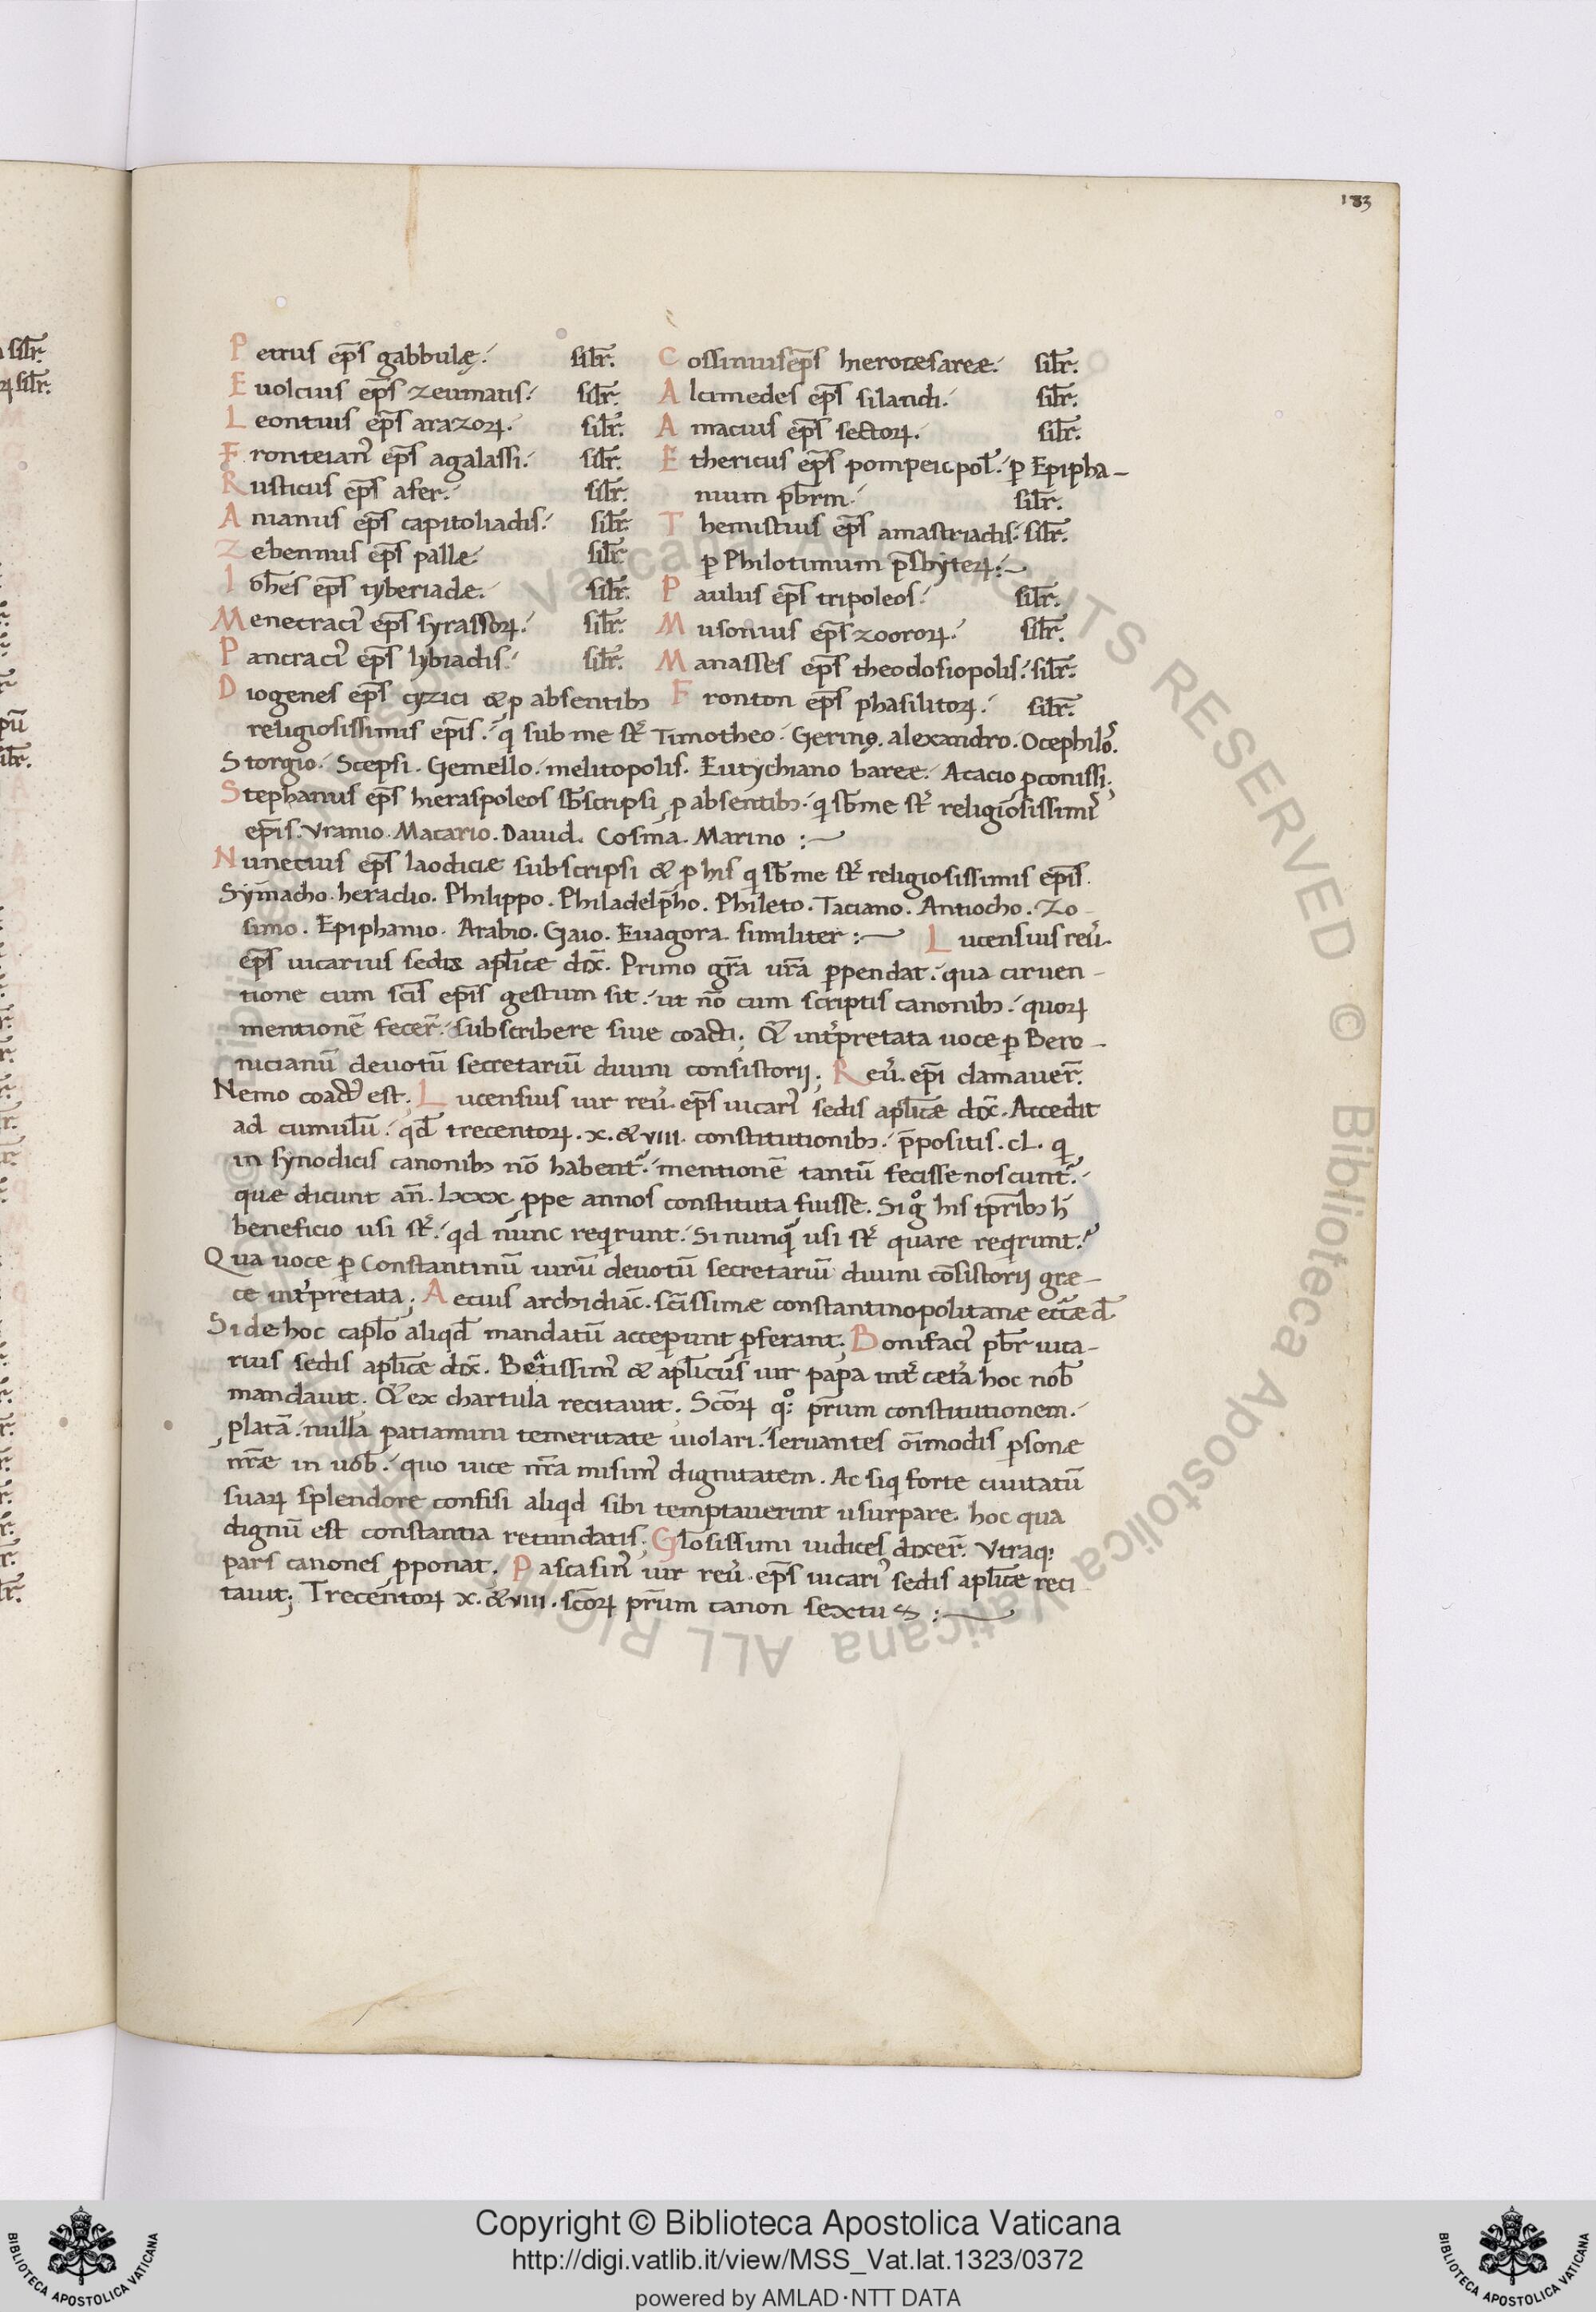 183
Petrus ep̄s gabbulę. sil̄r.
Euolcius ep̄s zeumatis. sil̄r.
Leontius ep̄s arazoꝝ. sil̄r.
Fronteian᾽ ep̄s agalassi. sil̄r.
Rusticus ep̄s afer. sil̄r.
Ananus ep̄s capitoliadis. sil̄r.
Zebennus ep̄s pallæ sil̄r.
Ioh̄es ep̄s tyberiadæ. sil̄r.
Menecraci᾽ ep̄s syrassoꝝ. sil̄r.
Pancraci᾽ ep̄s lybiadis. sil̄r.
Diogenes ep̄s cyzici & ꝓ absentibꝫ
Cossinius ep̄s hierocesareæ. sil̄r.
Alcimedes ep̄s silandi. sil̄r.
Amacius ep̄s sectoꝝ. sil̄r.
Ethericus ep̄s pompeiopol̄. ꝑ Epipha-
nium pb̄rm. sil̄r.
Themistius ep̄s amastriadis. sil̄r.
ꝑ Philotimum p̄sbyteꝝ:~
Paulus ep̄s tripoleos. sil̄r.
Musonius ep̄s zooroꝝ. sil̄r.
Manasses ep̄s theodosiopolis. sil̄r.
Fronton ep̄s phasilitoꝝ. sil̄r.
religiosissimis ep̄is. q̇ sub me st̄. Timotheo. Gerino. alexandro. Ocephilo᾽.
Storgio. Scepsi. Gemello. melitopolis. Eutychiano bareæ. Acacio ꝓconissi;
Stephanus ep̄s hieraspoleos sb̄scripsi ꝓ absentibꝫ. q̇ sb̄ me st̄ religiosissimi᾽
ep̄is. Vranio. Macario. Dauid. Cosma. Marino :~
Nunecius ep̄s laodiciæ subscripsi & ꝓ his q̇ sb̄ me st̄ religiosissimis ep̄is.
Symacho. heraclio. Philippo. Philadelpho. Phileto. Taciano. Antiocho. Zo-
simo. Epiphanio. Arabio. Gaio. Euagora. similiter :~ Lucensius reu᾽.
ep̄s uicarius sedis apl̄icæ dix̄. Primo gr̄a ur̄a ꝑpendat. qua ciruen-
tione cum sc̄is ep̄is gestum sit. ut nō cum scriptis canonibꝫ. quoꝝ
mentionē fecer̄. subscribere siue coacti; Q᾽ int᾽pretata uoce ꝑ Bero-
nicianū deuotū secretariū diuini consistorij; Reu᾽. ep̄i clamauer̄.
Nemo coact᾽ est; Lucensius uir reu᾽. ep̄s uicari᾽ sedis apl̄icæ dix̄. Accedit
ad cumulū. qd̄ trecentoꝝ. x. & viii. constitutionibꝫ. p̄positis. cL. q̇
in synodicis canonibꝫ nō habent᾽. mentionē tantū fecisse noscunt᾽.
quæ dicunt an̄. lxxx. ꝓpe annos constituta fuisse. Si g̊ his tp̄ribꝫ h̄
beneficio usi st̄. qd̄ nunc reqirunt. Si nunq̇ usi st̄ quare reqirunt?
Qua uoce ꝑ Constantinū uirū deuotū secretariū diuini cōsistorij græ-
ce int᾽pretata; Aecius archidiac̄. sc̄issimæ constantinopolitanæ eccl̄æ d̄.
Si de hoc capl̄o aliqd̄ mandatū acceperunt ꝓferant; Bonifaci᾽ pb̄r uica-
rius sedis apl̄icæ dix̄. Beatissim᾽ & apl̄icus uir papa int᾽ cet᾽a hoc nob̄
mandauit. Q᾽ ex chartula recitauit. Sc̄oꝝ q̊: pr̄um constitutionem.
ꝓlatā. nulla patiamini temeritate uiolari. seruantes om̄imodis ꝑsonæ
nr̄æ in uob̄. quo uice nr̄a misim᾽ dignitatem. Ac siq̇ forte ciuitatū
suaꝝ splendore confisi aliqd̄ sibi temptauerint usurpare. hoc qua
dignū est constantia retundatis; Gl̄osissimi iudices dixer̄. Vtraq:
pars canones ꝓponat. Pascasin᾽ uir reu᾽. ep̄s uicari᾽ sedis apl̄icæ reci-
tauit; Trecentoꝝ x. & viii. sc̄oꝝ pr̄um canon sextus :~
Copyright © Biblioteca Apostolica Vaticana
http://digi.vatlib.it/view/MSS_Vat.lat.1323/0372
powered by AMLAD·NTT DATA